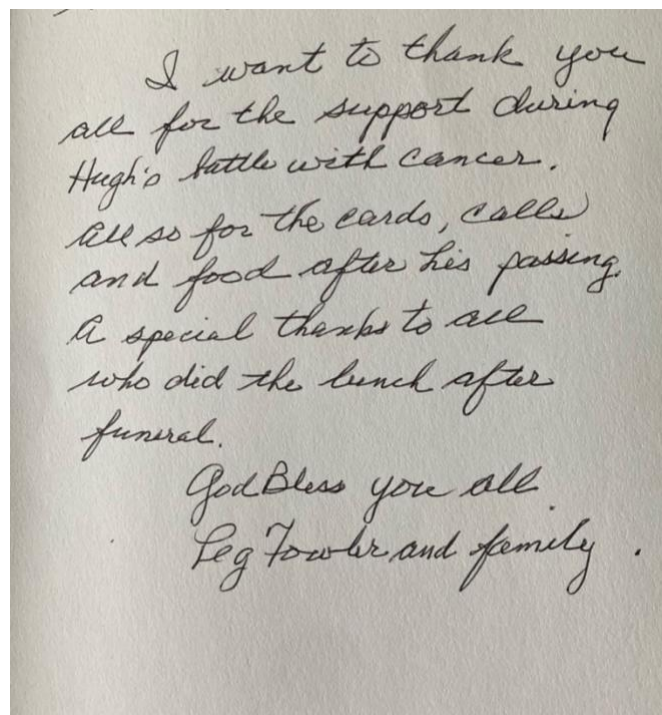 I want to thank you
all for the support during
Hugh's battle with cancer.
All so for the cards, calls
and food after his passing.
A special thanks to all
who did the lunch after
funeral.
God Bless you all
Peg Fowler and family.